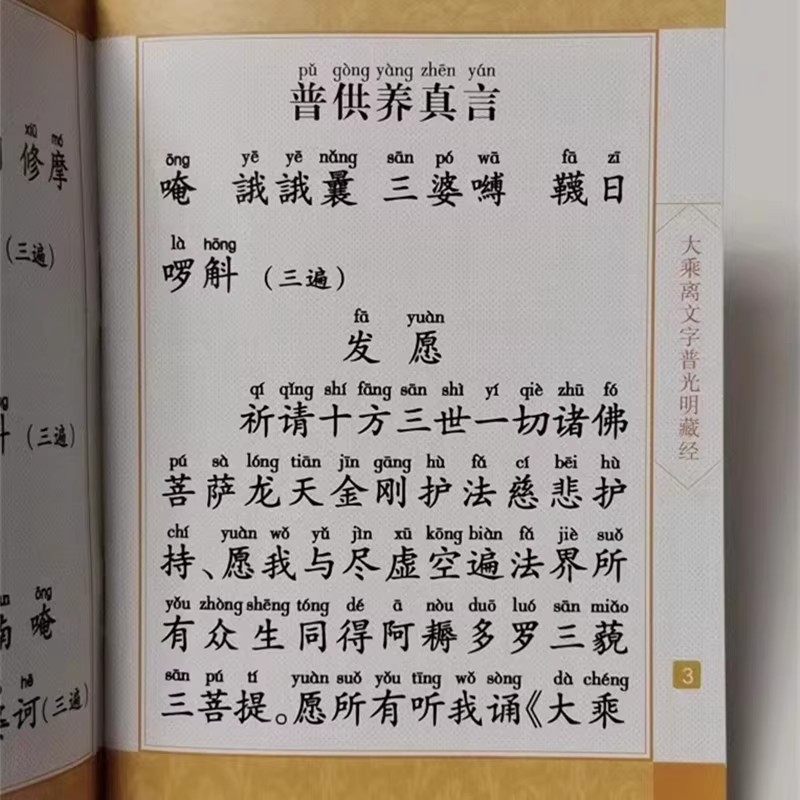 pǔ gòng yàng zhēn yán
普供养真言
ōng yē yē nǎng sān pó wā fā zī
唵 誐誐曩 三婆嚩 韈日
là hōng
啰斛（三遍）
fā yuàn
发愿
qí qǐng shí fāng sān shì yí qiè zhū fó
祈请十方三世一切诸佛
pú sà lóng tiān jīn gāng hù fǎ cí bēi hù
菩萨龙天金刚护法慈悲护
chí yuàn wǒ yǔ jìn xū kōng biàn fǎ jiè suǒ
持、愿我与尽虚空遍法界所
yǒu zhòng shēng tóng dé ā nòu duō luó sān miǎo
有众生同得阿耨多罗三藐
sān pú tí yuàn suǒ yǒu tīng wǒ sòng dà chéng
三菩提。愿所有听我诵《大乘
大乘离文字普光明藏经
3
xiū mó
修摩
（三遍）
（三遍）
ōng
唵
hē
诃（三遍）